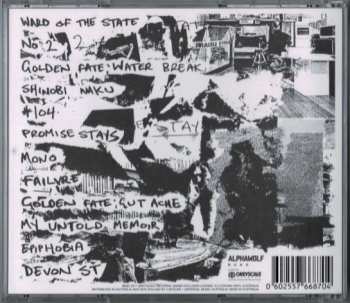 WARD OF THE STATE
No 2 2
GOLDEN FATE: WATER BREAK
SHINOBI NAKU
#104
PROMISE STAYS
STAY
MONO
FAILURE
GOLDEN FATE: GUT ACHE
MY UNTOLD MEMOIR
EPIPHOBIA
DEVON ST
ALPHAWOLF
GREYSCALE
0 602557 668704